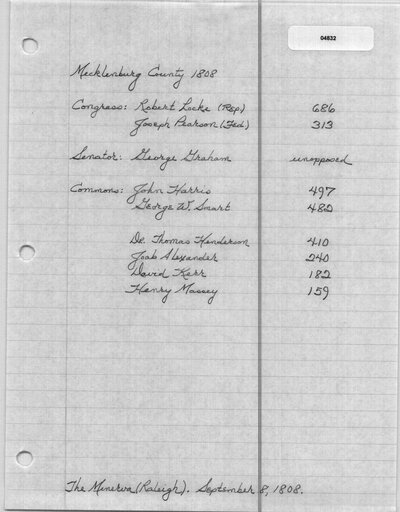 04832
Mecklenburg County 1808
Congress: Robert Locke (Rep) 686
Joseph Pearson (Fed) 313
Senator: George Graham unopposed
Commons: John Harris 497
George W. Smart 482
Dr. Thomas Henderson 410
Joab Alexander 240
David Kerr 182
Henry Massey 159
The Minerva (Raleigh). September 8, 1808.